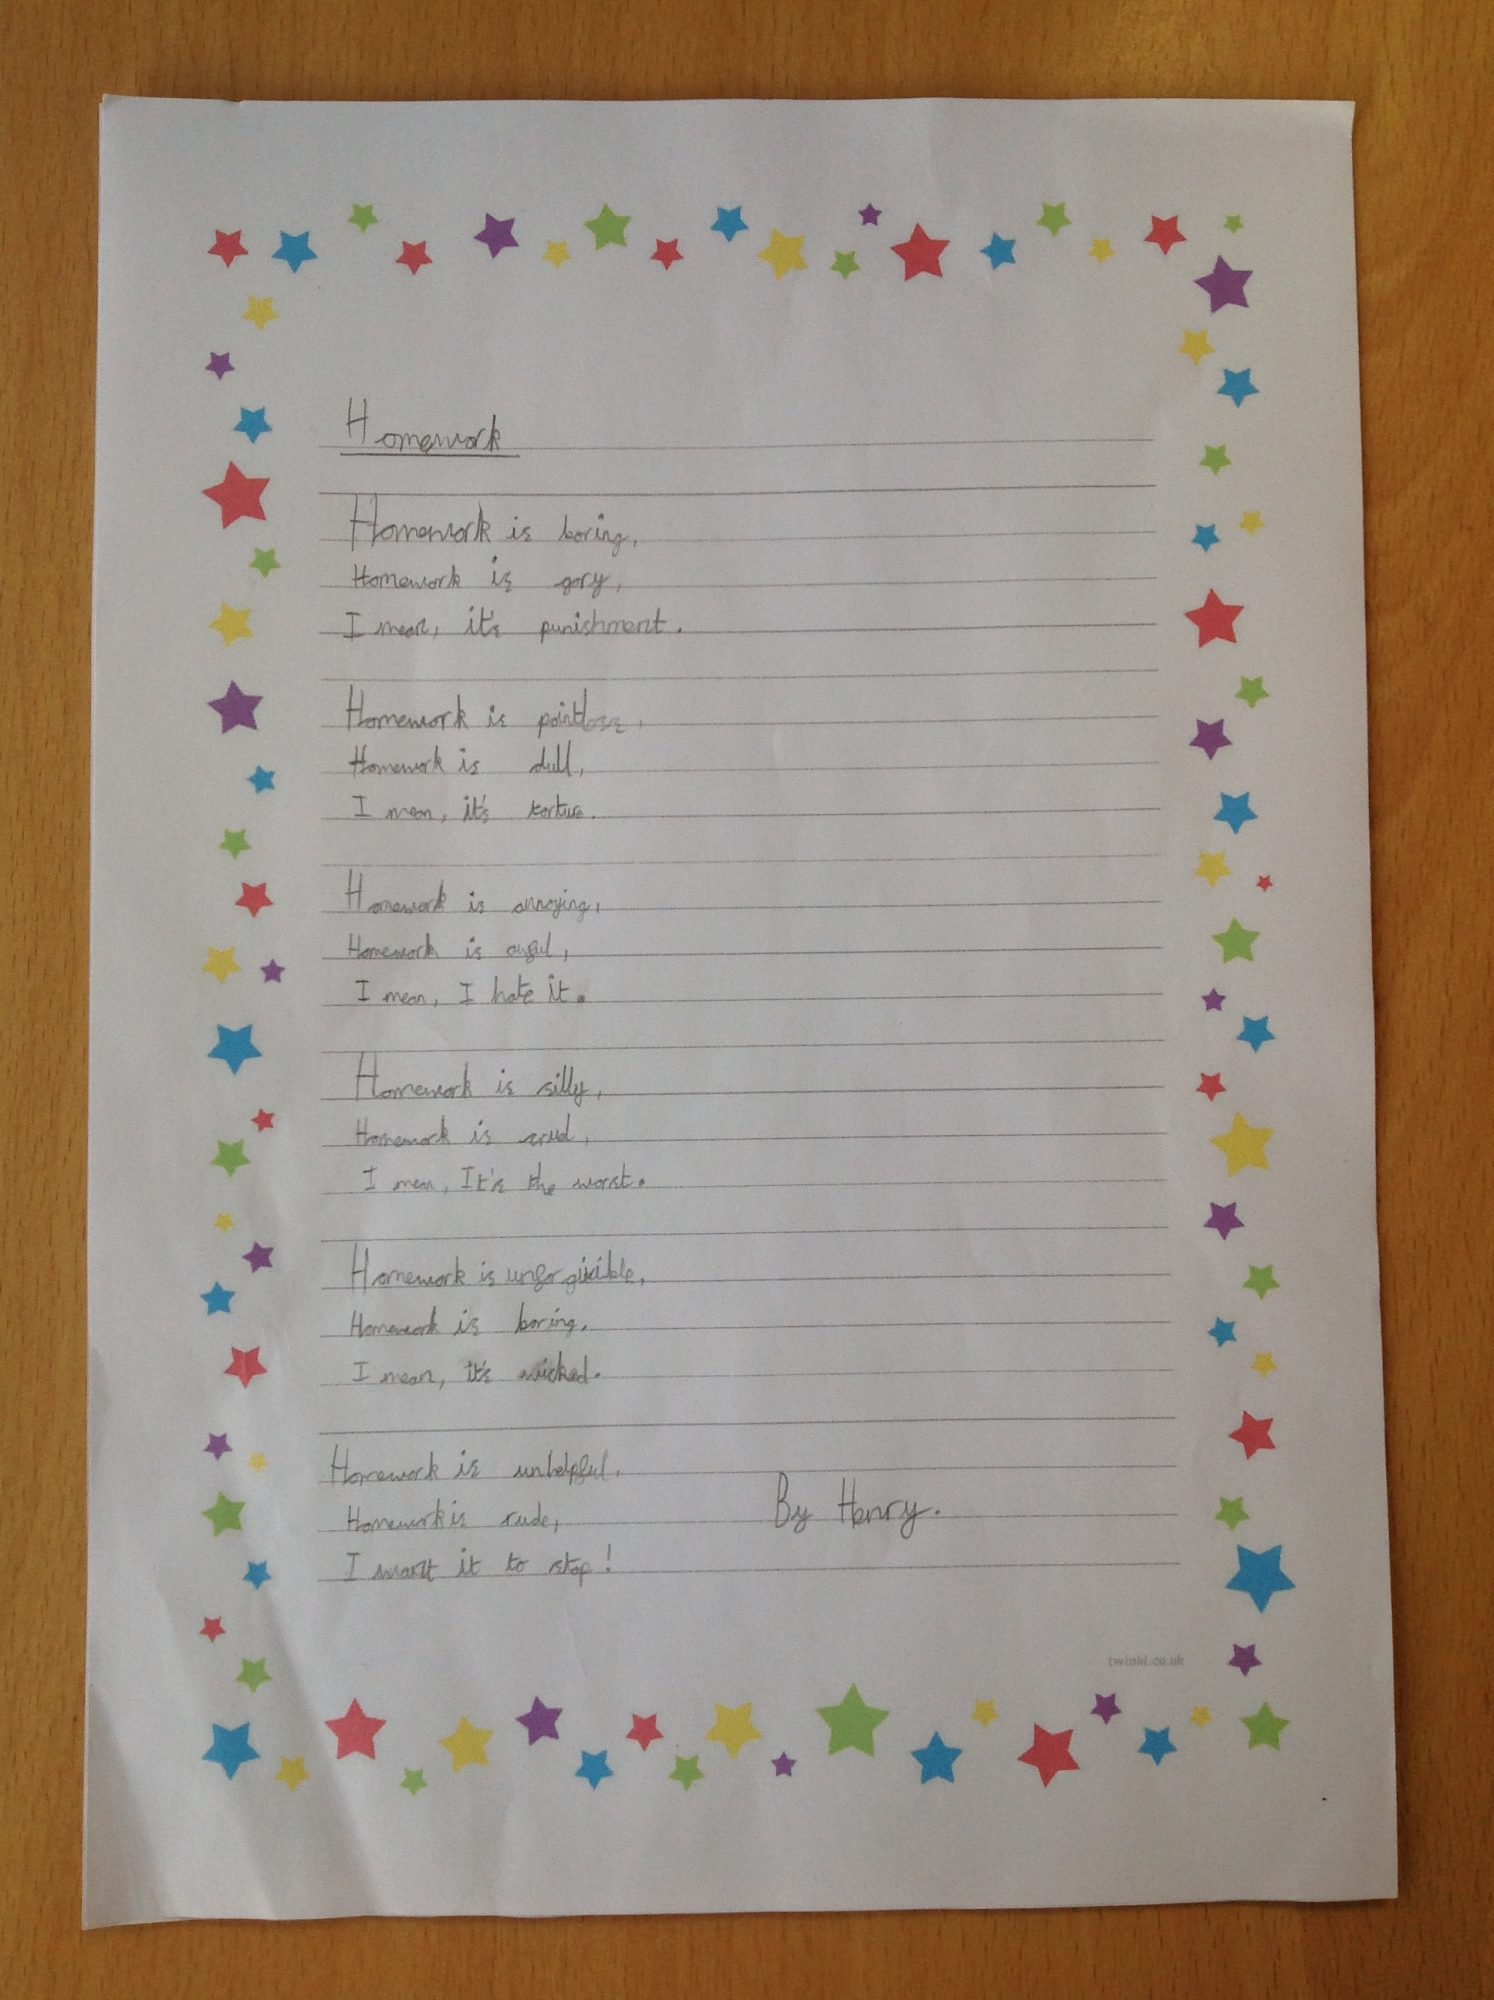 Homework
Homework is boring,
Homework is gory,
I mean, it's punishment.
Homework is pointless,
Homework is dull,
I mean, it's torture.
Homework is annoying,
Homework is awful,
I mean, I hate it.
Homework is silly,
Homework is cruel,
I mean, It's the worst.
Homework is unforgivible,
Homework is boring,
I mean, it's wicked.
Homework is unhelpful,
Homework is rude,
I want it to stop!
By Henry.
twinkl.co.uk